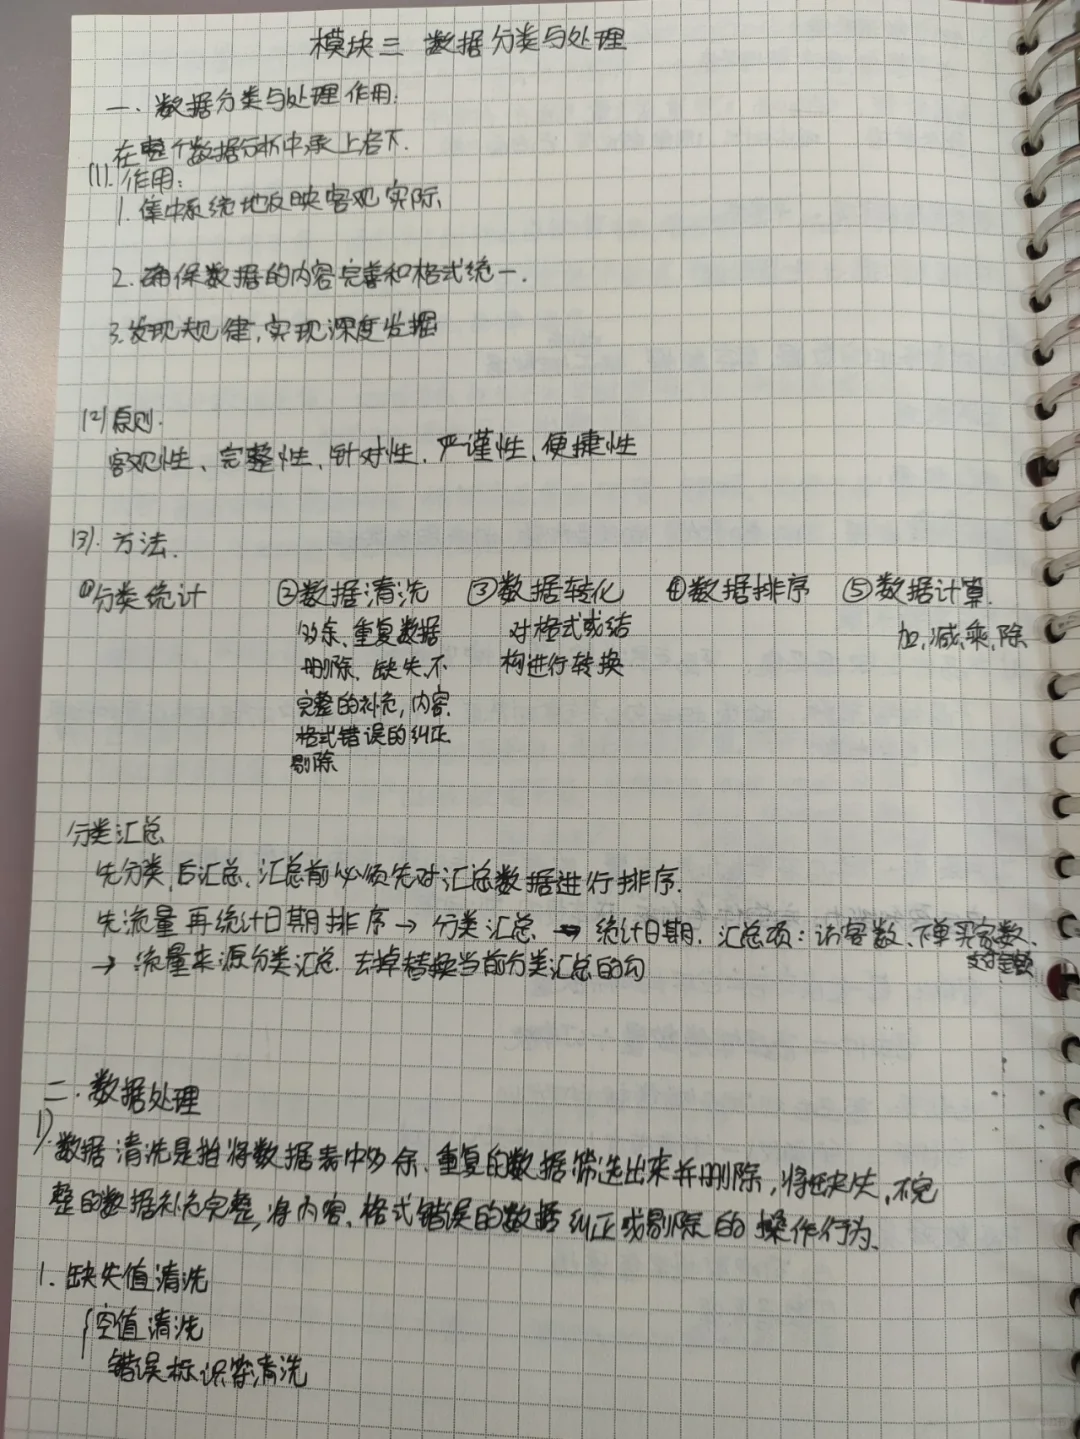 模块三 数据分类与处理
一.数据分类与处理作用:
在整个数据分析中承上启下.
(1).作用:
1.集中系统地反映客观实际
2.确保数据的内容完善和格式统一.
3.发现规律,实现深度发掘
(2)原则.
客观性、完整性、针对性、严谨性、便捷性
(3).方法.
①分类统计 ②数据清洗 ③数据转化 ④数据排序 ⑤数据计算.
多余、重复数据 对格式或结 加,减,乘,除
删除、缺失,不 构进行转换
完整的补充,内容.
格式错误的纠正
剔除
分类汇总
先分类,后汇总,汇总前必须先对汇总数据进行排序.
先流量再统计日期排序→分类汇总→统计日期.汇总项:访客数、下单买家数、
支付金额
→流量来源分类汇总.去掉替换当前分类汇总的勾
二.数据处理
1).数据清洗是指将数据表中多余、重复的数据筛选出来并删除,将缺失,不完
整的数据补充完整,将内容、格式错误的数据纠正或剔除的操作行为、
1.缺失值清洗
{空值清洗
错误标识符清洗